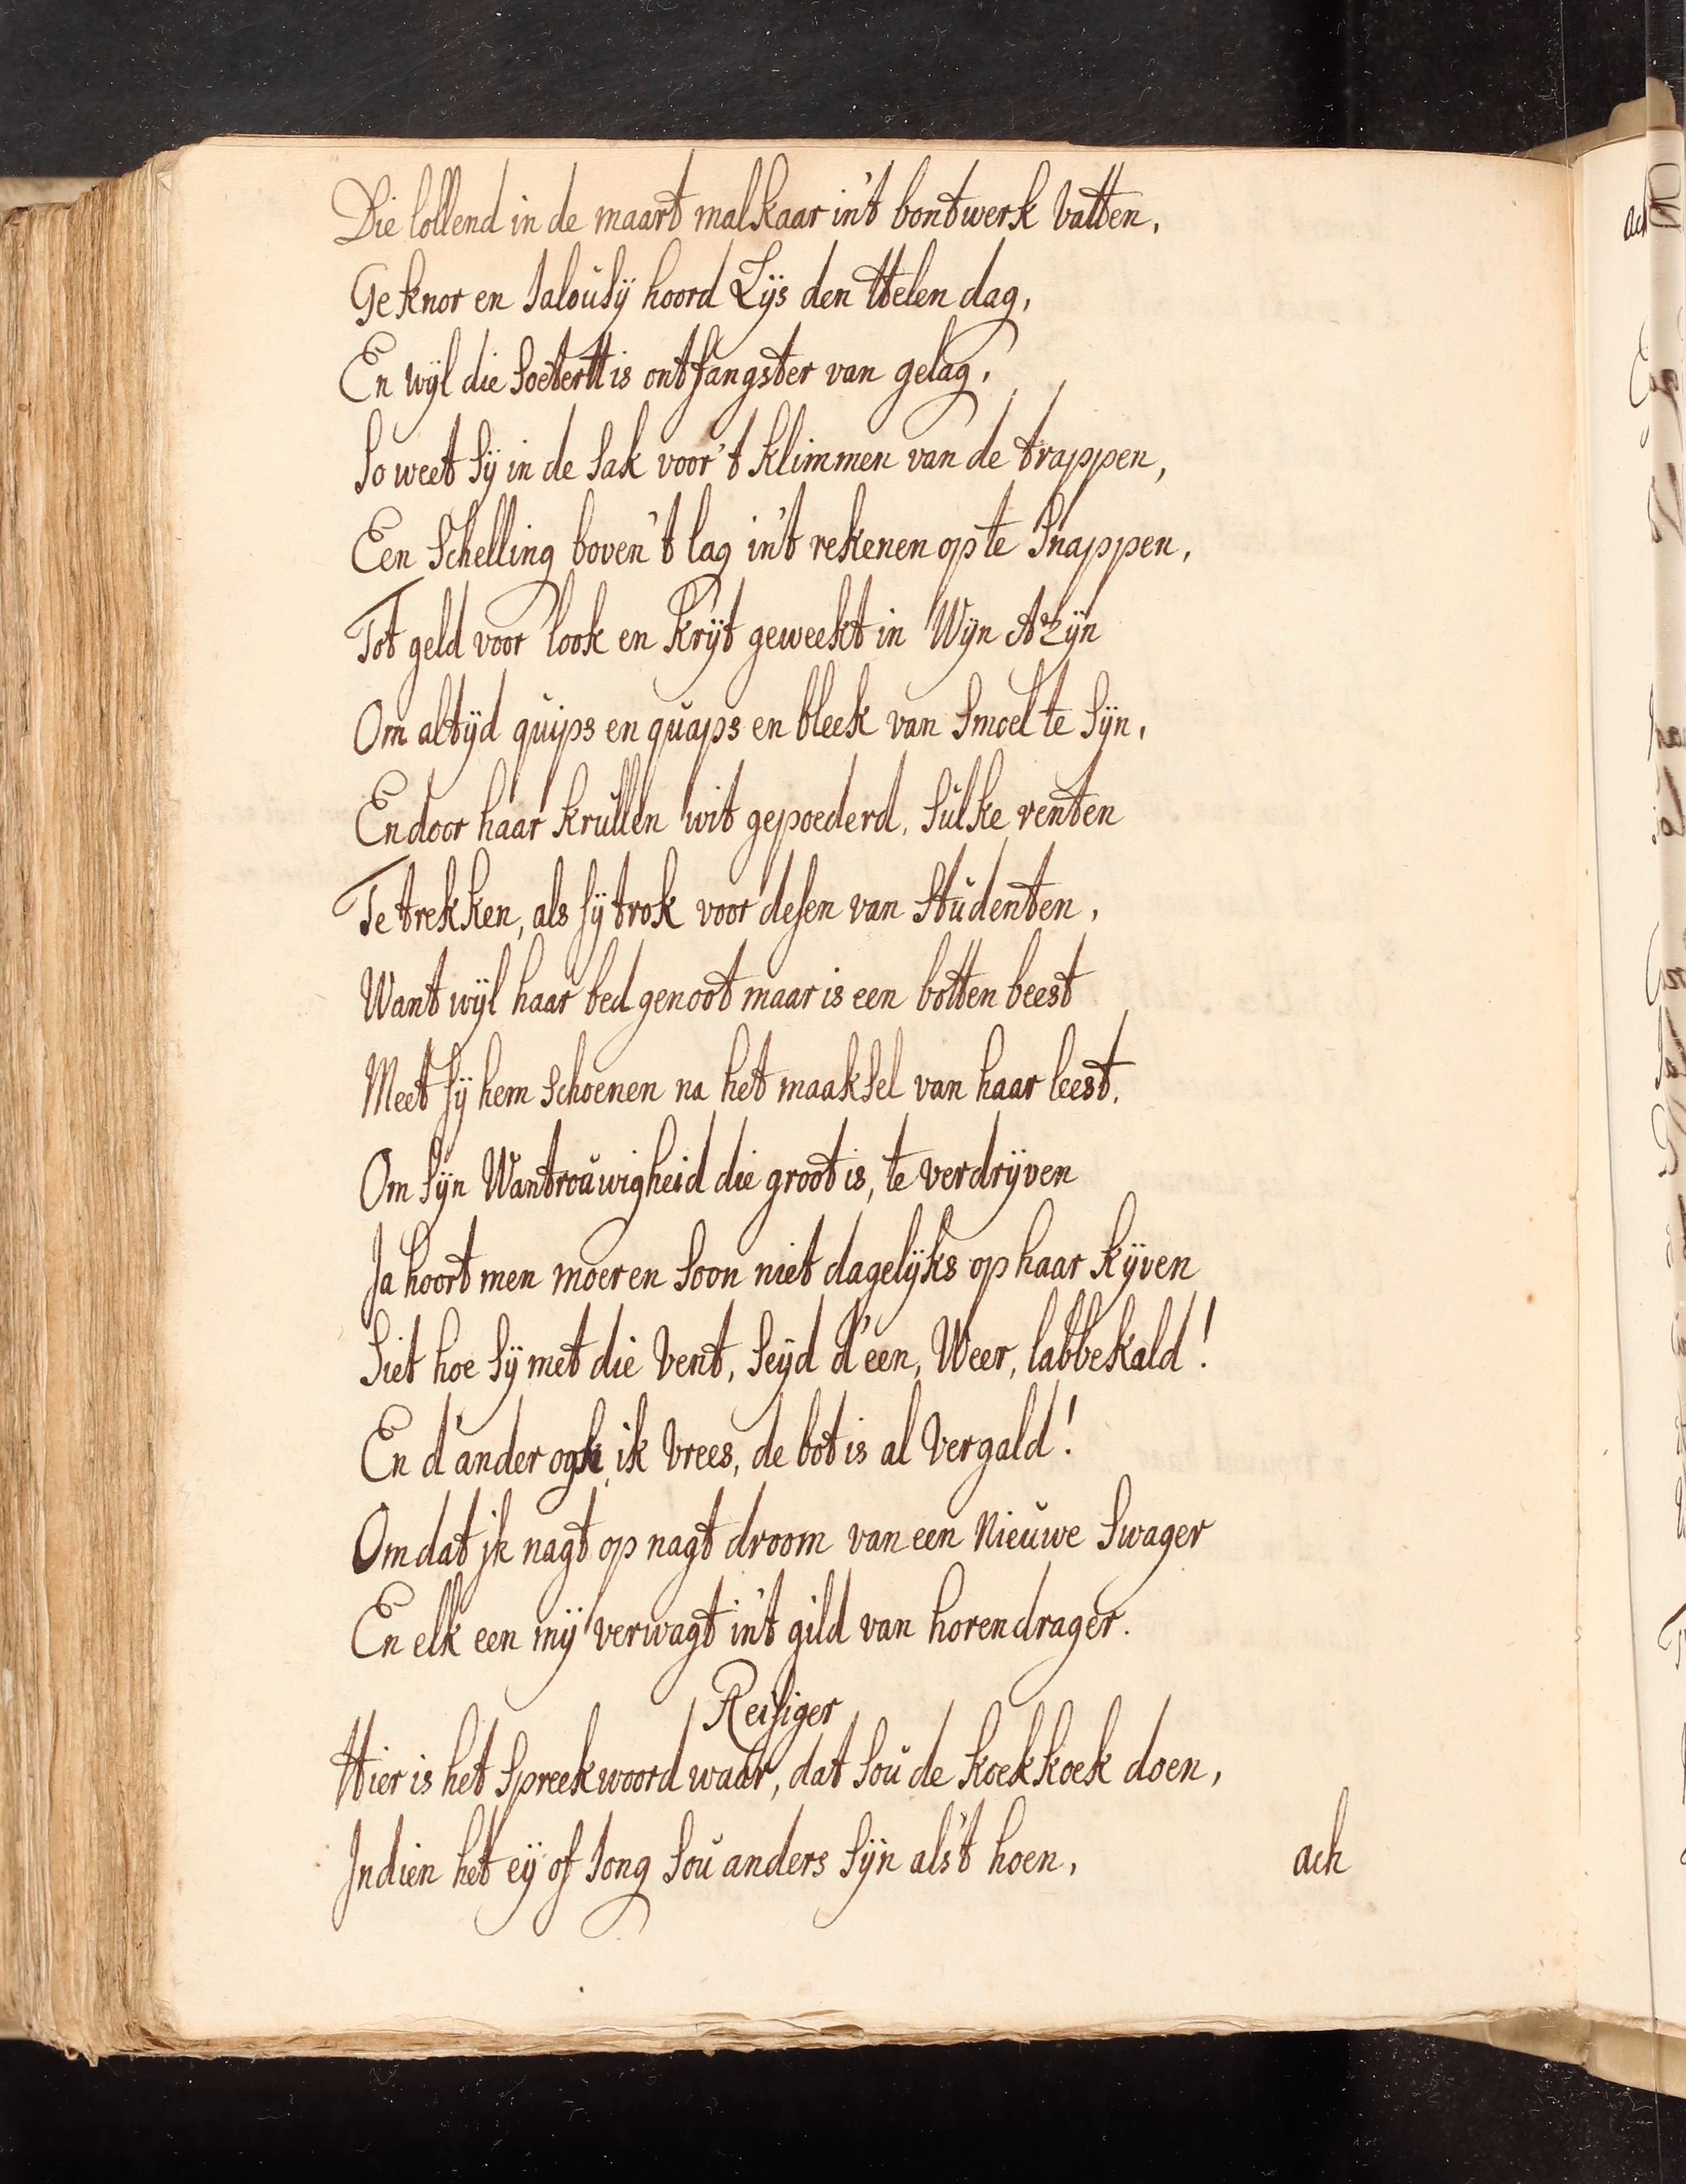 Die lollend in de maart malkaar in't bontwerk vatten,
Geknor en Jalousÿ hoord Lÿs den Helen dag,
En wÿl die Soetert is ontfangster van gelag,
So weet Sÿ in de Sak voor't klimmen van de trappen,
Een Schelling boven't lag in't rekenen op te Snappen,
Tot geld voor look en krÿt geweekt in Wÿn AZÿn
Om altÿd quips en quaps en bleek van Smoel te Sÿn,
En door haar krullen wit gepoederd, Sulke venten
Te trekken, als sÿ trok voor desen van Studenten,
Want wÿl haar bedgenoot maar is een botten beest
Meet sÿ hem Schoenen na het maaksel van haar leest,
Om Sÿn Wantrouwigheid die groot is, te verdrÿven
Ja hoort men moer en Soon niet dagelÿks op haar kÿven
Siet hoe Sÿ met die Vent, Seÿd d'een, Weer, labbekald!
En d'ander ogh ik vrees, de bot is al vergald!
Omdat jk nagt op nagt droom van een Nieuwe Swager
En elk een mÿ verwagt in't gild van horendrager.
Reisiger
Hier is het Spreekwoord waar, dat Sou de koekkoek doen,
Indien het eÿ of Jong Sou anders Sÿn als't hoen,
ach